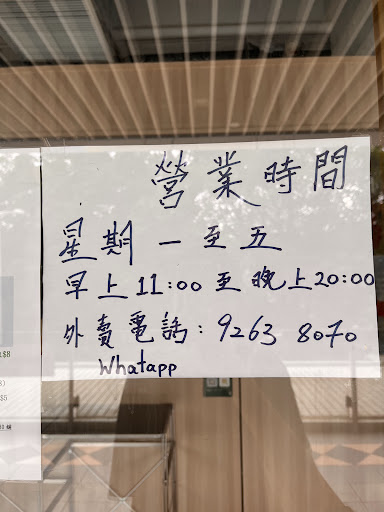 營業時間
星期一至五
早上11:00至晚上20:00
外賣電話:9263 8070
Whatapp
$8
$5